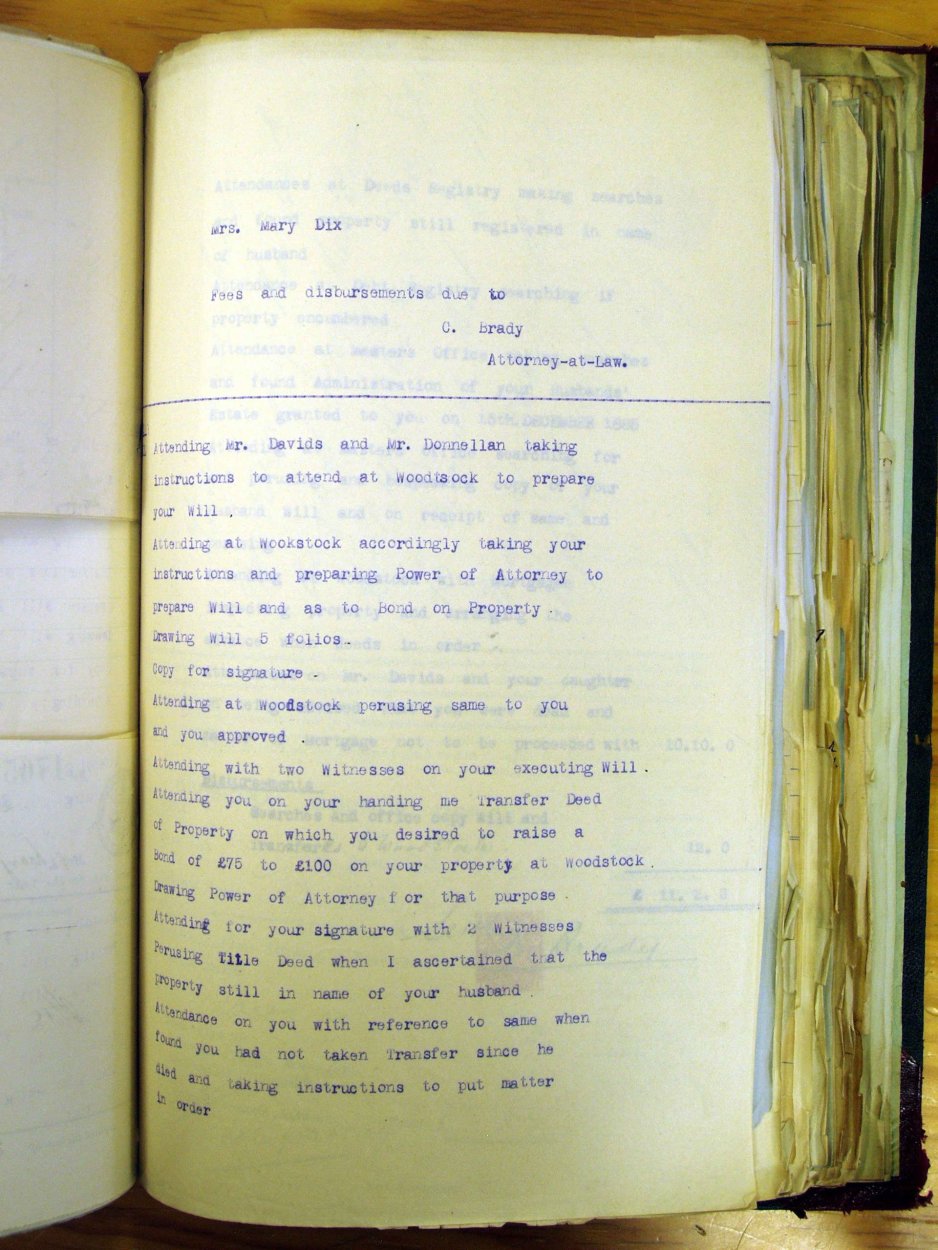 Mrs. Mary Dix
Fees and disbursements due to
C. Brady
Attorney-at-Law.
Attending Mr. Davids and Mr. Donnellan taking
instructions to attend at Woodtsock to prepare
your Will.
Attending at Wookstock accordingly taking your
instructions and preparing Power of Attorney to
prepare Will and as to Bond on Property.
Drawing Will 5 folios.
Copy for signature.
Attending at Woodstock perusing same to you
and you approved.
Attending with two Witnesses on your executing Will.
Attending you on your handing me Transfer Deed
of Property on which you desired to raise a
Bond of £75 to £100 on your property at Woodstock.
Drawing Power of Attorney for that purpose.
Attending for your signature with 2 Witnesses
Perusing Title Deed when I ascertained that the
property still in name of your husband.
Attendance on you with reference to same when
found you had not taken Transfer since he
died and taking instructions to put matter
in order